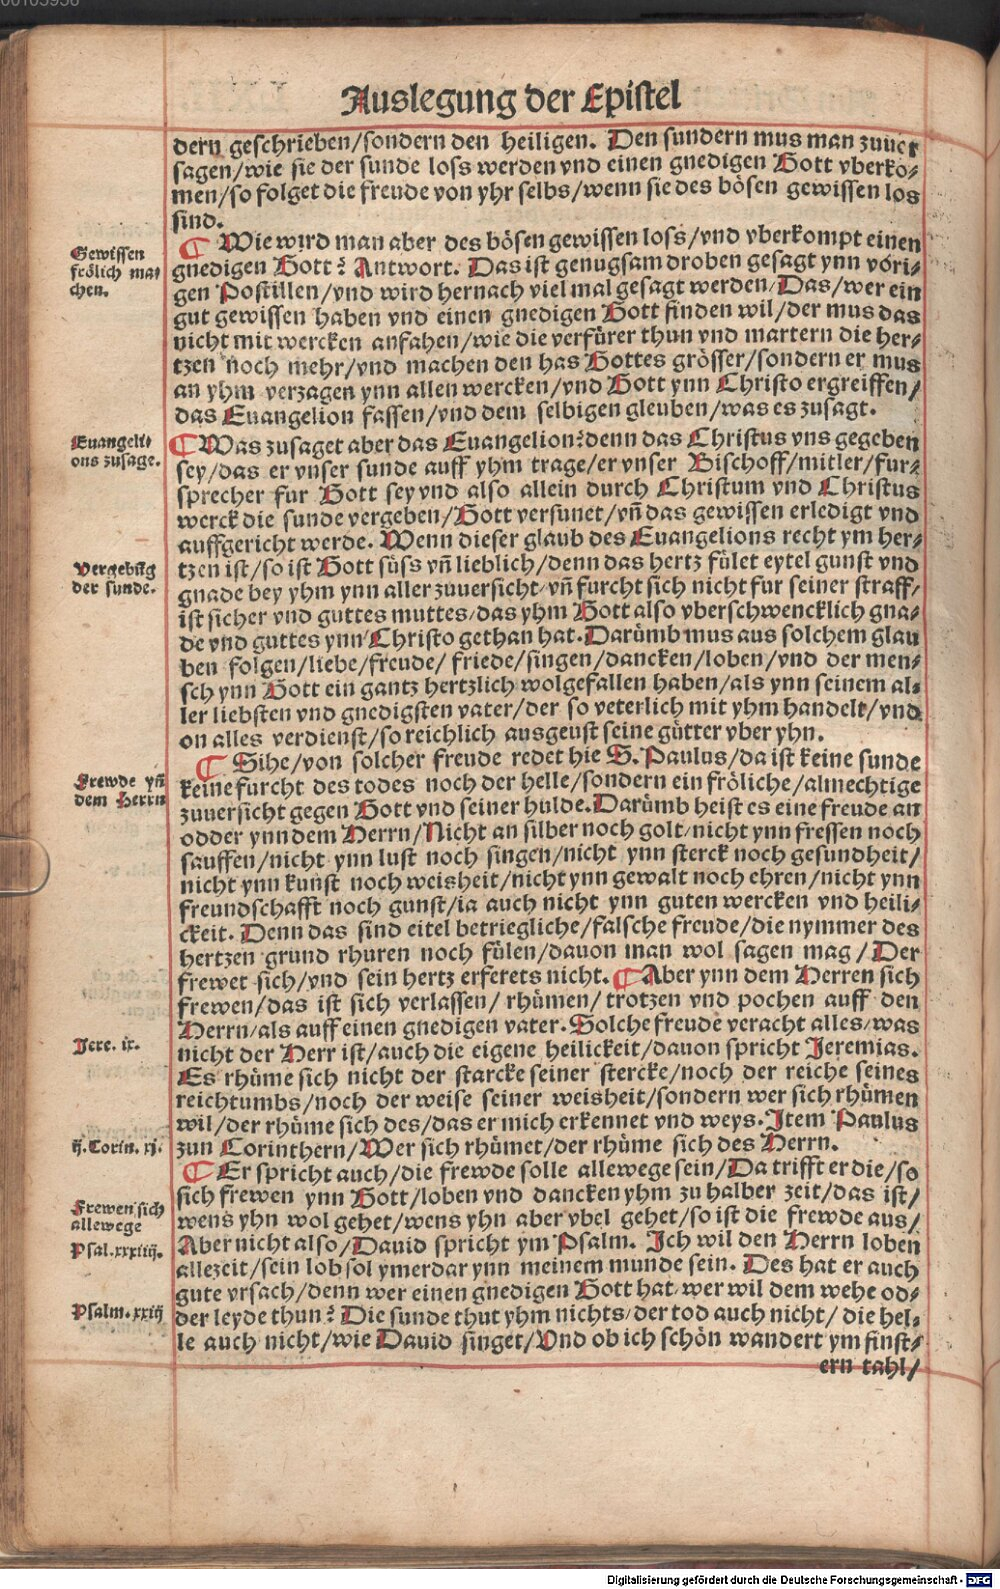 00103956
Auslegung der Epistel
dern geschrieben/sondern den heiligen. Den sundern mus man zuuer
sagen/wie sie der sunde loss werden vnd einen gnedigen Gott vberko⸗
men/so folget die freude von yhr selbs/wenn sie des bösen gewissen los
sind.
Gewissen
frölich ma⸗
chen.
¶ Wie wird man aber des bösen gewissen loss/vnd vberkompt einen
gnedigen Gott? Antwort. Das ist genugsam droben gesagt ynn vöri⸗
gen Postillen/vnd wird hernach viel mal gesagt werden/Das/wer ein
gut gewissen haben vnd einen gnedigen Gott finden wil/der mus das
nicht mit wercken anfahen/wie die verfürer thun vnd martern die her⸗
tzen noch mehr/vnd machen den has Gottes grösser/sondern er mus
an yhm verzagen ynn allen wercken/vnd Gott ynn Christo ergreiffen/
das Euangelion fassen/vnd dem selbigen gleuben/was es zusagt.
Euangeli⸗
ons zusage.
¶ Was zusaget aber das Euangelion? denn das Christus vns gegeben
sey/das er vnser sunde auff yhm trage/er vnser Bischoff/mitler/fur⸗
sprecher fur Gott sey vnd also allein durch Christum vnd Christus
werck die sunde vergeben/Gott versunet/vn̄ das gewissen erledigt vnd
auffgericht werde. Wenn dieser glaub des Euangelions recht ym her⸗
Vergebūg
der sunde.
tzen ist/so ist Gott süss vn̄ lieblich/denn das hertz fület eytel gunst vnd
gnade bey yhm ynn aller zuuersicht/vn̄ furcht sich nicht fur seiner straff/
ist sicher vnd guttes muttes/das yhm Gott also vberschwencklich gna⸗
de vnd guttes ynn Christo gethan hat. Darümb mus aus solchem glau
ben folgen/liebe/freude/ friede/singen/dancken/loben/vnd der men⸗
sch ynn Gott ein gantz hertzlich wolgefallen haben/als ynn seinem al⸗
ler liebsten vnd gnedigsten vater/der so veterlich mit yhm handelt/vnd
on alles verdienst/so reichlich ausgeust seine gütter vber yhn.
Frewde yn̄
dem Herrn
¶ Sihe/von solcher freude redet hie S. Paulus/da ist keine sunde
keine furcht des todes noch der helle/sondern ein fröliche/almechtige
zuuersicht gegen Gott vnd seiner hulde. Darümb heist es eine freude an
odder ynn dem Herrn/Nicht an silber noch golt/nicht ynn fressen noch
sauffen/nicht ynn lust noch singen/nicht ynn sterck noch gesundheit/
nicht ynn kunst noch weisheit/nicht ynn gewalt noch ehren/nicht ynn
freundschafft noch gunst/ia auch nicht ynn guten wercken vnd heili⸗
ckeit. Denn das sind eitel betriegliche/falsche freude/die nymmer des
hertzen grund rhuren noch fülen/dauon man wol sagen mag/ Der
frewet sich/vnd sein hertz erferets nicht. ¶ Aber ynn dem Herren sich
frewen/das ist sich verlassen/ rhümen/ trotzen vnd pochen auff den
Herrn/als auff einen gnedigen vater. Solche freude veracht alles/was
Jere. ix.
nicht der Herr ist/auch die eigene heilickeit/dauon spricht Jeremias.
Es rhüme sich nicht der starcke seiner stercke/noch der reiche seines
reichtumbs/noch der weise seiner weisheit/sondern wer sich rhümen
wil/der rhüme sich des/das er mich erkennet vnd weys. Item Paulus
ij. Corin. xj.
zun Corinthern/Wer sich rhümet/der rhüme sich des Herrn.
¶ Er spricht auch/die frewde solle allewege sein/Da trifft er die/so
sich frewen ynn Gott/loben vnd dancken yhm zu halber zeit/das ist/
Frewen sich
allewege
wens yhn wol gehet/wens yhn aber vbel gehet/so ist die frewde aus/
Psal. xxxiiij.
Aber nicht also/Dauid spricht ym Psalm. Ich wil den Herrn loben
allezeit/sein lob sol ymerdar ynn meinem munde sein. Des hat er auch
gute vrsach/denn wer einen gnedigen Gott hat/wer wil dem wehe od⸗
Psalm. xxiij
der leyde thun? Die sunde thut yhm nichts/der tod auch nicht/ die hel⸗
le auch nicht/wie Dauid singet/Vnd ob ich schön wandert ym finst⸗
ern tahl/
Digitalisierung gefördert durch die Deutsche Forschungsgemeinschaft - DFG